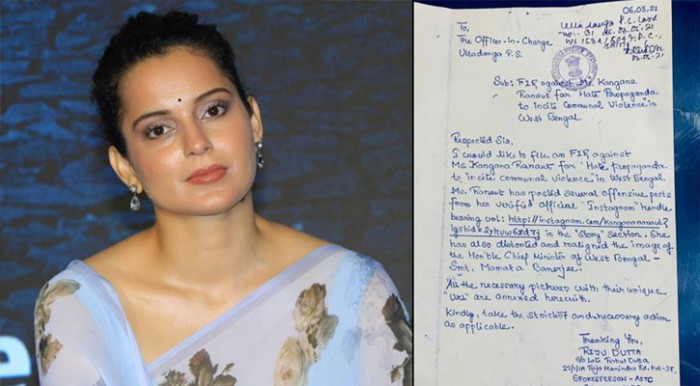 06.05.21
To,
The Officer-In-Charge
Ultadanga P.S.
Sub: FIR against Ms. Kangana
Ranaut for Hate Propaganda
to incite communal violence in
West Bengal
Respected Sir,
I would like to file an FIR against
Ms. Kangana Ranaut for 'Hate Propaganda
to incite communal violence' in West Bengal.
Ms. Ranaut has posted several offensive posts
from her verified official "Instagram" handle
bearing url: http://instagram.com/kanganaranaut?
in the "story" section. She
has also distorted and maligned the image of
the Hon'ble Chief Minister of West Bengal -
Smt. Mamata Banerjee.
All the necessary pictures with their unique
are annexed herewith.
Kindly, take the and necessary action
as applicable.
Thanking You,
RIJU DUTTA
S/o Late
Raja Manindra Rd, Kol-37,
SPOKESPERSON - AITC